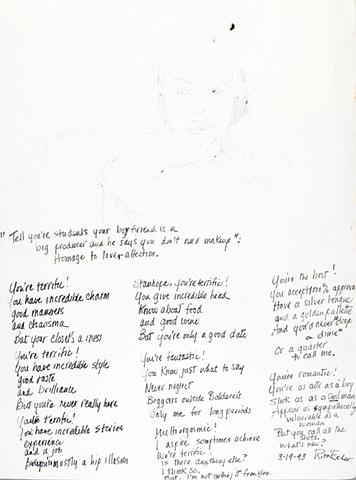 "Tell you're students your boyfriend is a
big producer and he says you don't need makeup":
Homage to love & affection.
You're terrific!
You have incredible charm
good manners
and charisma
But your closet's a mess
You're terrific!
You have incredible style
good taste
and brilliance
But you're never really here
You're terrific!
You have incredible stories
experience
and a job
mostly a hip illusion
Stanhope, you're terrific!
You give incredible head
Know about food
and good wine
But you're only a good date
You're fantastic!
You know just what to say
Never neglect
Beggars outside Balducci's
Only me for long periods
Multiorgasmic!
I aspire sometimes achieve
We're terrific!
Is there anything else?
I think so.
But, I'm not it from here.
You're the best!
You accept 100% approval
Have a silver tongue
and a golden palette
And you'd never drop
a dime
Or a quarter
to call me.
You're romantic!
You're as cute as a boy
Slick as as a man
Appear as sympathetically
vulnerable as a
woman
But you call all the
shots.
What's new?
3-19-93